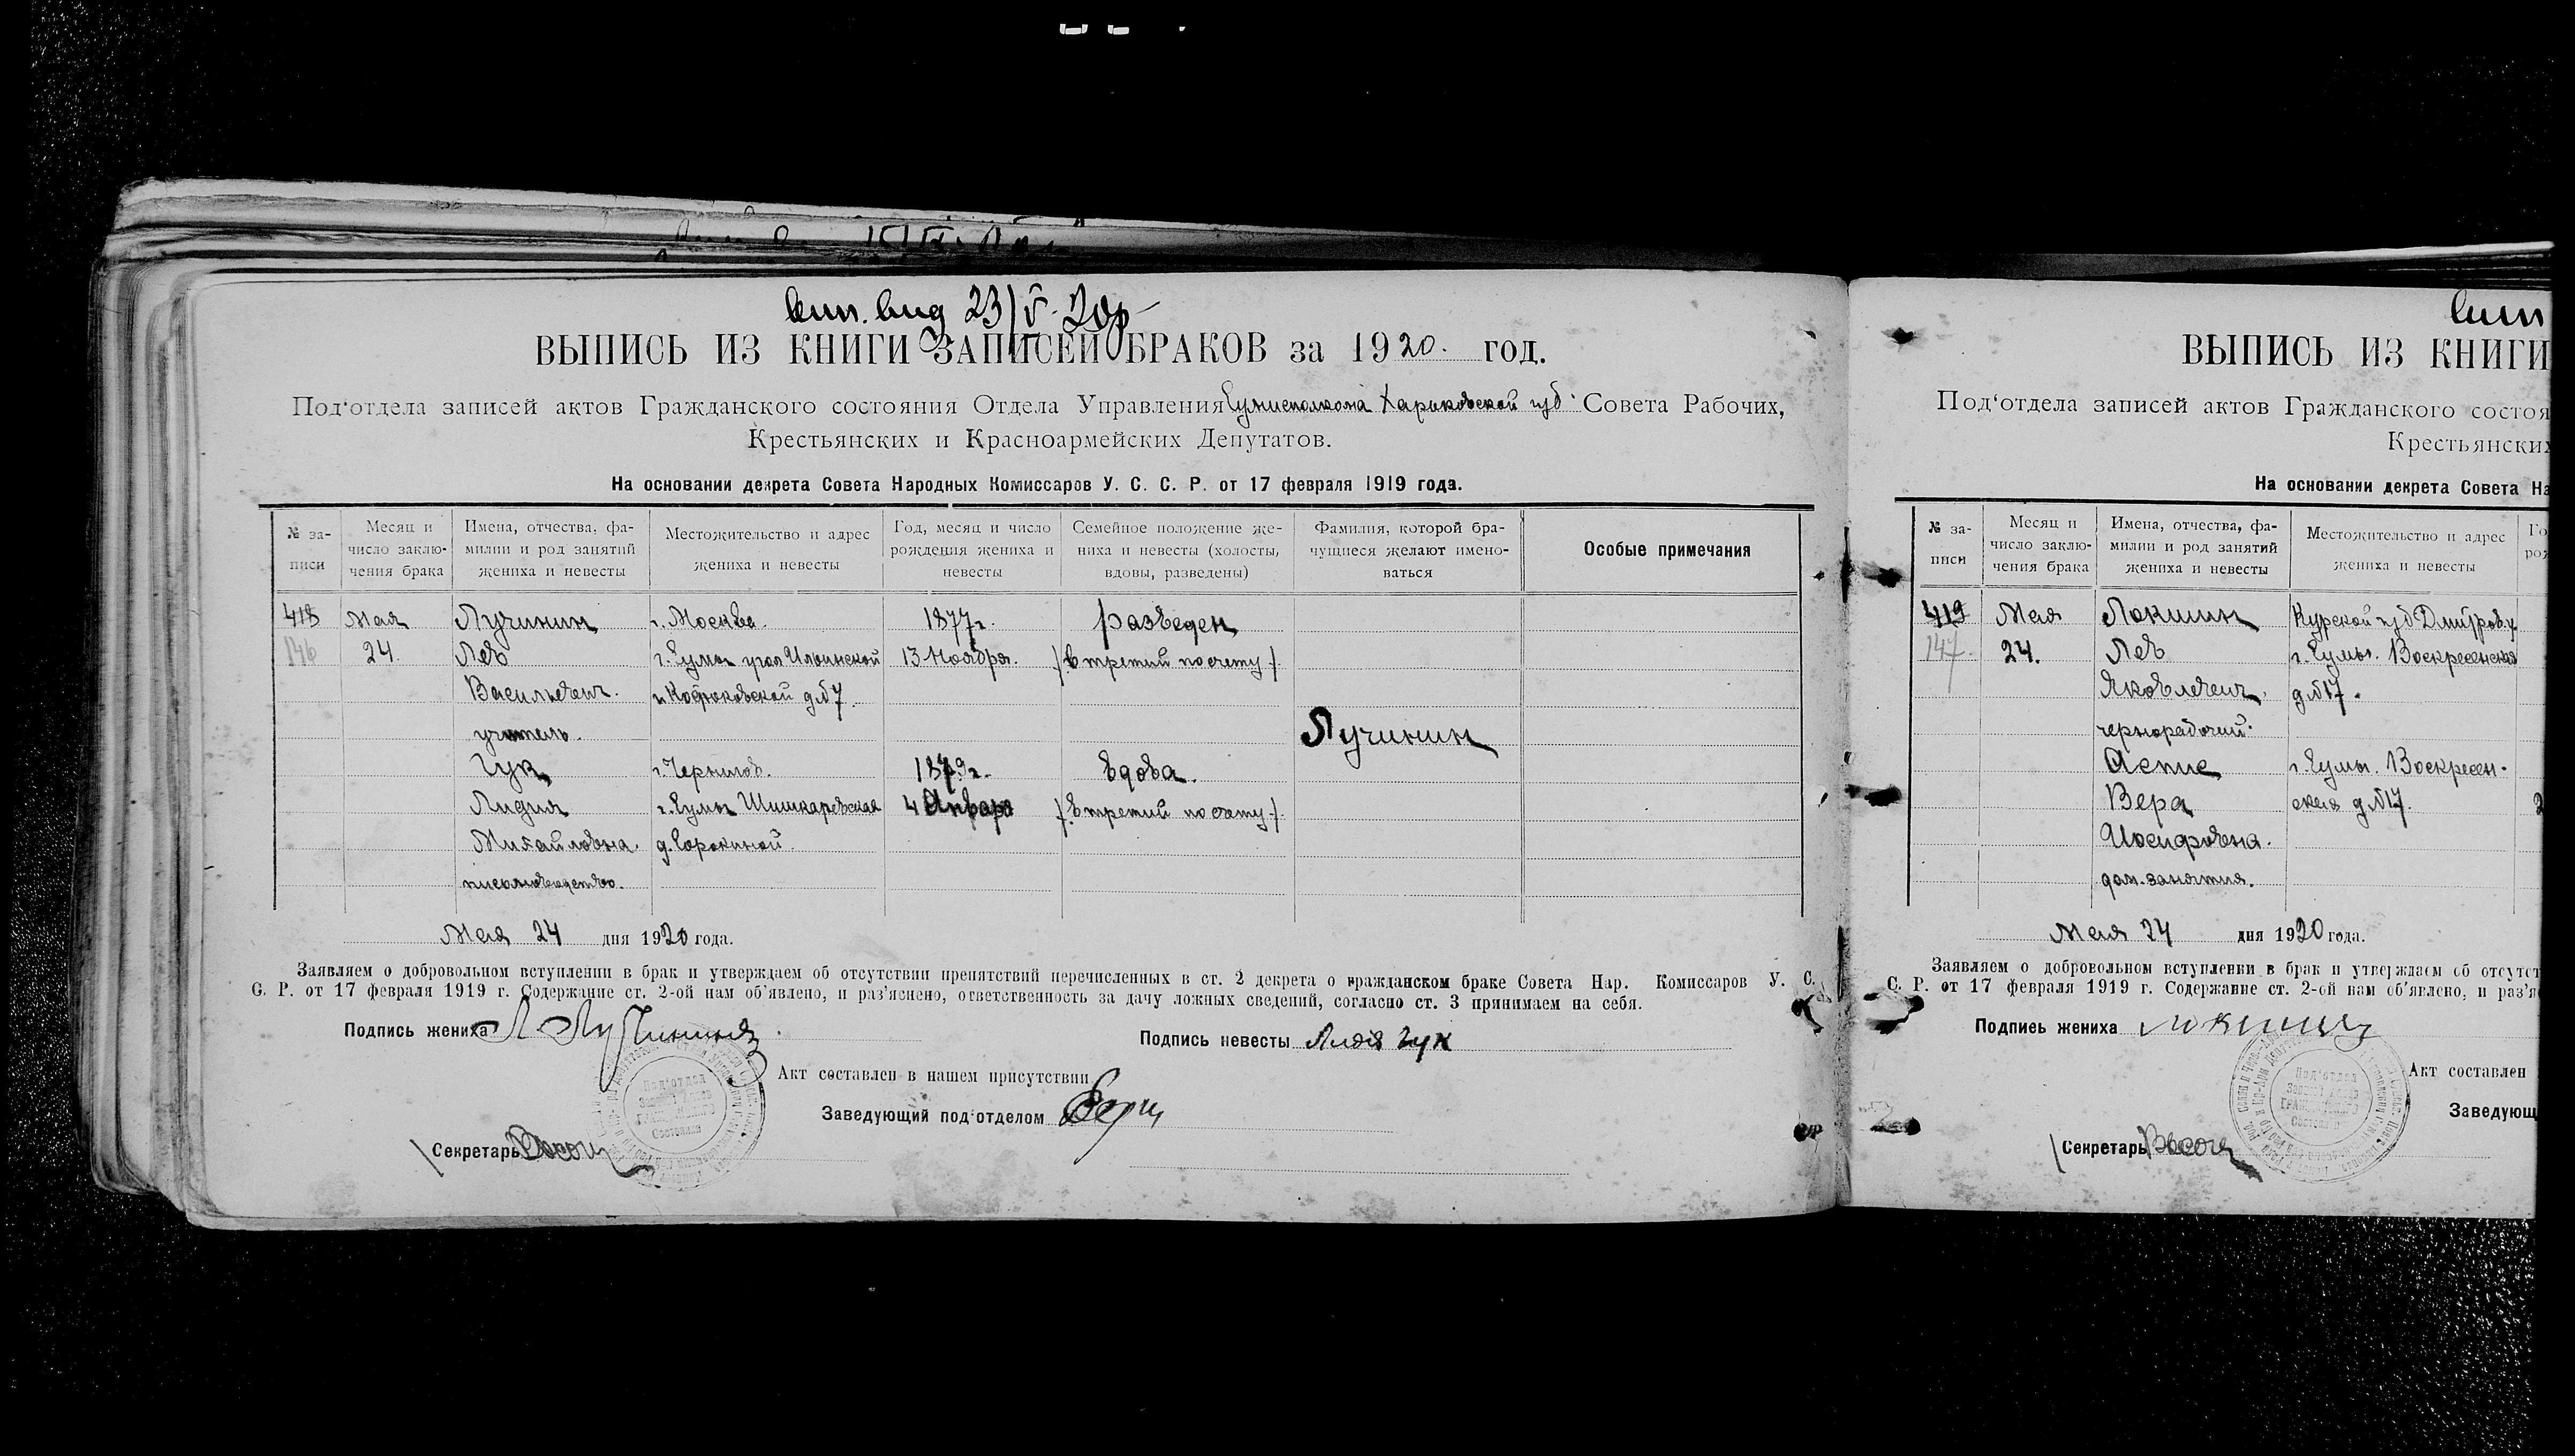 вып. выд 23/V-20г
ВЫПИСЬ ИЗ КНИГИ ЗАПИСЕЙ БРАКОВ за 1920. год.
Под‘отдела записей актов Гражданского состояния Отдела Управления Сумисполкома Харьковской губ. Совета Рабочих,
Крестьянских и Красноармейских Депутатов.
На основании декрета Совета Народных Комиссаров У. С. С. Р. от 17 февраля 1919 года.
№ за-
писи
Месяц и
число заклю-
чения брака
Имена, отчества, фа-
милии и род занятий
жениха и невесты
Местожительство и адрес
жениха и невесты
Год, месяц и число
рождения жениха и
невесты
Семейное положение же-
ниха и невесты (холосты,
вдовы, разведены)
Фамилия, которой бра-
чущиеся желают имено-
ваться
Особые примечания
418 Мая Лучинин г. Москва. 1877г. разведен
146 24. Лев г. Сумы угол Ильинской 13 Ноября. /в третий по счету/.
Васильевич. д№7.
учитель. Лучинин
Гук г. Чернигов. 1879г. вдова.
Лидия г. Сумы Шишкаревская 4 Января /в третий по счету/.
Михайловна. д. Сорокиной.
письмоводство.
Мая 24 дня 1920 года.
Заявляем о добровольном вступлении в брак и утверждаем об отсутствии препятствий перечисленных в ст. 2 декрета о гражданском браке Совета Нар. Комиссаров У. С.
С. Р. от 17 февраля 1919 г. Содержание ст. 2-ой нам об’явлено, и раз’яснено, ответственность за дачу ложных сведений, согласно ст. 3 принимаем на себя.
Подпись жениха Л Лучининъ
Подпись невесты Лидія Гук
Акт составлен в нашем присутствии
Заведующий под‘отделом
Секретарь
Под‘отдел
Состояния
вып
ВЫПИСЬ ИЗ КНИГИ
Под‘отдела записей актов Гражданского состоя
Крестьянских
На основании декрета Совета На
№ за-
писи
Месяц и
число заклю-
чения брака
Имена, отчества, фа-
милии и род занятий
жениха и невесты
Местожительство и адрес
жениха и невесты
Го
рож
419 Мая Локшин Курской губ Дмитров.у.
147. 24. Лев г. Сумы. Воскресенская
Яковлевич. д№17.
чернорабочий.
Аспис г. Сумы. Воскресен-
Вера ская д№17. 2
Иосифовна.
дом. занятия.
Мая 24 дня 1920 года.
Заявляем о добровольном вступлении в брак и утверждаем об отсутст
С. Р. от 17 февраля 1919 г. Содержание ст. 2-ой нам об’явлено, и раз’я
Подпись жениха Локшин
Акт составлен
Заведующ
Секретарь
Под‘отдел
Состояния